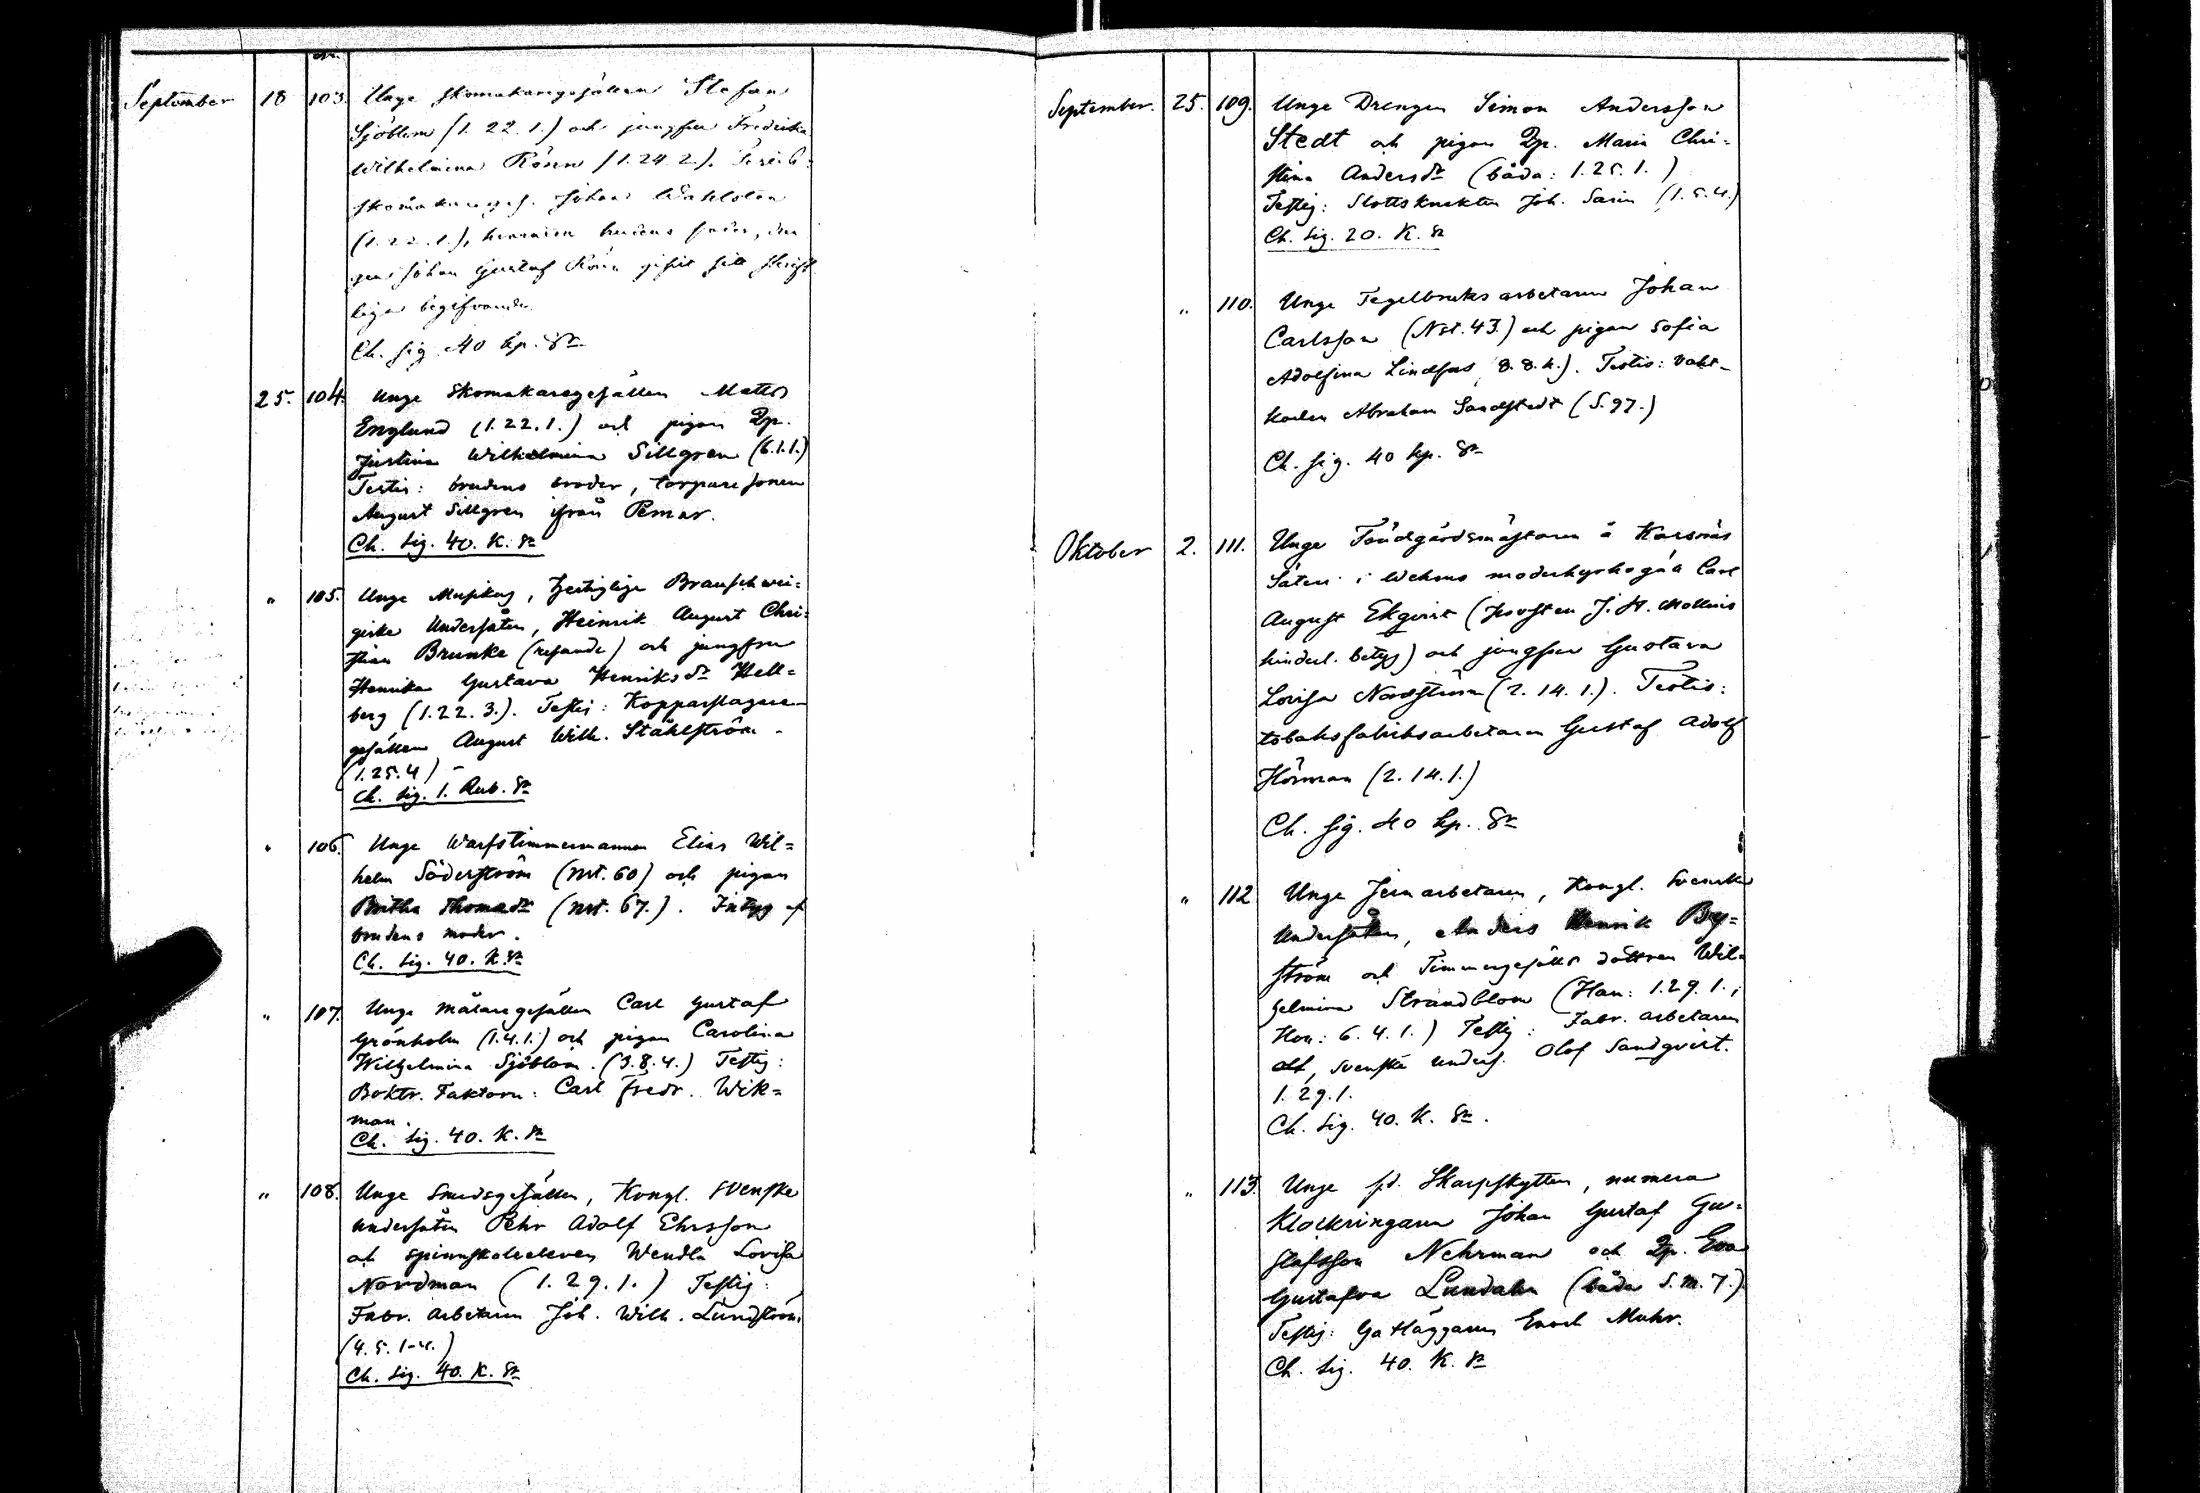 September 18 103. Unge skomakaregesällen Stefan
Sjöblom (1. 22. 1.) och jungfru Fredrika
Wilhelmina Rönn (1. 24. 2.). Testis:
skomakareges. Johan Wahlsten
(1. 22. 1.), brudens fader,
Johan Gustaf Rönn gifvit sitt skrift
liga begifvande.
Ch. sig. 40 kp. Sr
25. 104. Unge Skomakaregesällen Matts
Englund (1. 22. 1.) och pigan Qp.
Justina Wilhelmina Sillgren (6. 1. 1.)
Testis: brudens broder, torparesonen
August Sillgren ifrån Pemar.
Ch. sig. 40. K. Sr
" 105. Unge Musikus, Hertiglige Braunschwei=
giske Undersåten, Heinrik August Chri=
stian Brunke (resande) och jungfru
Henrika Gustava Henriksdr Hell=
berg (1. 22. 3.). Testis: Kopparslagare
gesällen August Wilh. Ståhlström.
(1. 25. 4)
Ch. sig. 1. Rub. Sr
" 106. Unge Warfstimmermannen Elias Wil=
helm Söderström (Nrt. 60) och pigan
Britha Thomasdr (Nrt. 67.). Intyg af
brudens moder.
Ch. sig. 40. K. Sr
" 107. Unge målaregesällen Carl Gustaf
Grönholm (1. 4. 1.) och pigan Carolina
Wilhelmina Sjöblom. (3. 8. 4.) Testis:
Boktr. Faktorn: Carl Fredr. Wik=
man.
Ch. sig. 40. K. Sr
" 108. Unge Smedsgesällen, Kongl. Svenske
undersåten Pehr Adolf Ehrsson
och spinnskoleeleven Wendla Lovisa
Nordman (1. 29. 1.) Testis:
Fabr. arbetaren Joh. Wilh. Lundström.
(4. 5. 1-4.)
Ch. sig. 40. K. Sr
September. 25. 109. Unge Drengen Simon Andersson
Stedt och pigan Qp. Maria Chri=
stina Andersdr (båda: 1. 25. 1.)
Testis: Slottsknekten Joh. Sarin (1. 5. 4.)
Ch. sig. 20. K. Sr
" 110. Unge Tegelbruksarbetaren Johan
Carlsson (Nst. 43.) och pigan Sofia
Adolfina Lindfors (8. 8. 4.). Testis: vakt-
karlen Abraham Sandstedt (S. 97.)
Ch. sig. 40 kp. Sr
Oktober 2. 111. Unge Trädgårdsmästaren å Karsnäs
Säteri i Wehmo moderkyrkogäll Carl
August Ekqvist (Prosten J. H. Mollins
hinderl. betyg) och jungfru Gustava
Lovisa Nordström (2. 14. 1.). Testis:
tobaksfabriksarbetaren Gustaf Adolf
Hörman (2. 14. 1.)
Ch. sig. 40 kp. Sr
" 112 Unge Jernarbetaren, Kongl. Svenske
Undersåten, Anders Henrik By=
ström och Timmergesälls dottren Wil=
helmina Strandblom (Han: 1. 29. 1.;
Hon: 6. 4. 1.) Testis: Fabr. arbetaren
Svenska unders. Olof Sandqvist.
1. 29. 1.
Ch. sig. 40. K. Sr.
" 113. Unge f.d. Skarpskytten, numera
Klockringaren Johan Gustaf Gu=
stafsson Nehrman och Qp. Eva
Gustafva Lundahn (båda S. M. 7.)
Testis: Gatläggaren Enoch Muhr.
Ch. sig. 40. K. Sr